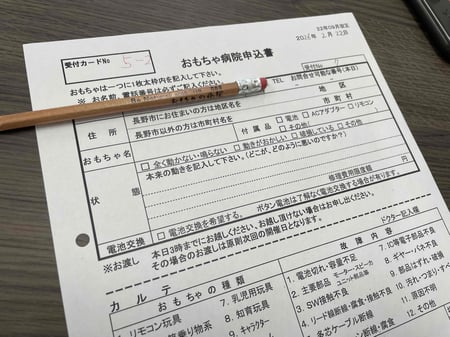 22年09月改定
2026年 2月 22日
受付カードNo 5-3
おもちゃ病院申込書
受付No
おもちゃは一つに1枚太枠内を記入して下さい。
※ お名前、電話番号は必ずご記入ください。
TEL
お問合せ可能な番号(本日)
おもちゃの病院
住所
長野市にお住まいの方は地区名を
地区
長野市以外の方は市町村名を
市町村
おもちゃ名
付属品
□電池 □ACアダプター □リモコン
□その他(
状態
□全く動かない・鳴らない □動きがおかしい □破損している □その他
本来の動きを記入して下さい。(どこが、どのように悪いのですか?)
修理費用限度額
電池交換
□電池交換を希望する。 ボタン電池は了解なく電池交換する場合があります。
※お渡し
本日3時までにお越しください。お越し頂けない場合はお申し出ください。
その場合のお渡しは原則次回の開催日となります。
カルテ
ドクター記入欄
おもちゃの種類
故障内容
1.リモコン玩具
7.乳児用玩具
8.知育玩具
9.キャラクター
1.電池切れ・容量不足
2.主要部品 モーター・スピーカ ユニット部品等
3.SW接触不良
4.リード線断線・腐食・接触不良
5.多芯ケーブル断線
7.IC等電子部品不良
8.ギヤー・バネ不良
9.部品はずれ・破損
10.汚れ・つまり・すべ
11.原因不明
12.その他